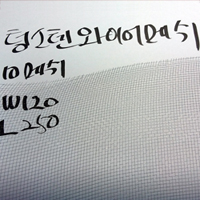 텅스텐와이어메쉬
10메쉬
W120
L250